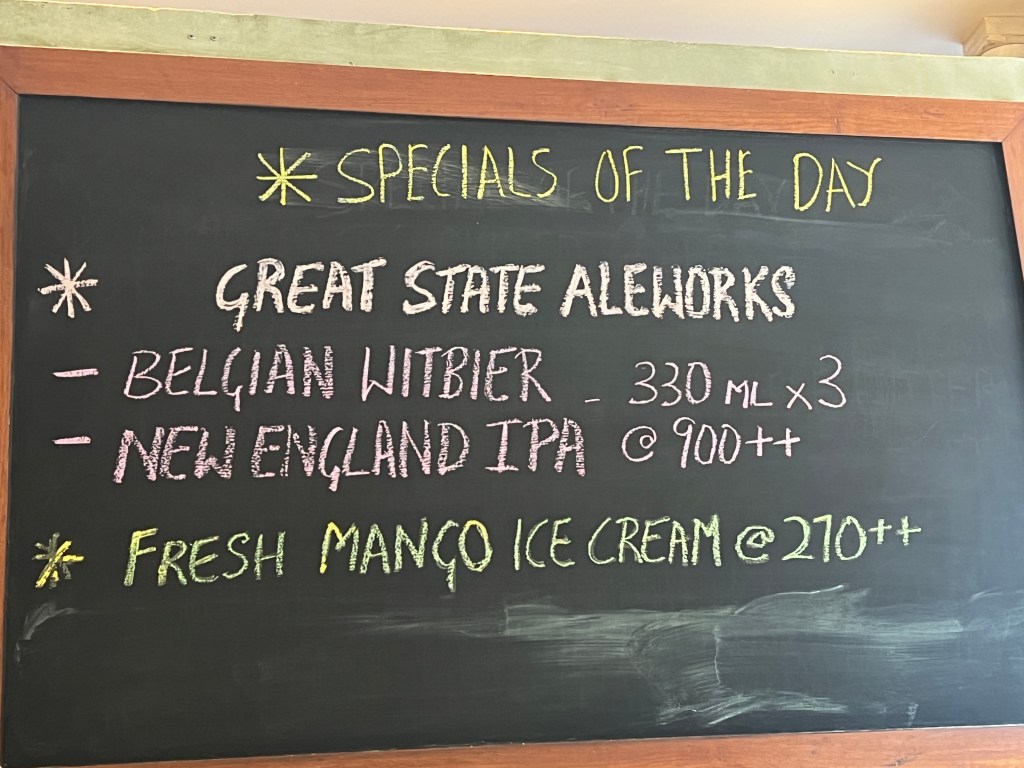 * SPECIALS OF THE DAY
* GREAT STATE ALEWORKS
- BELGIAN WITBIER - 330 ML x 3
- NEW ENGLAND IPA @ 900++
* FRESH MANGO ICE CREAM @ 270++